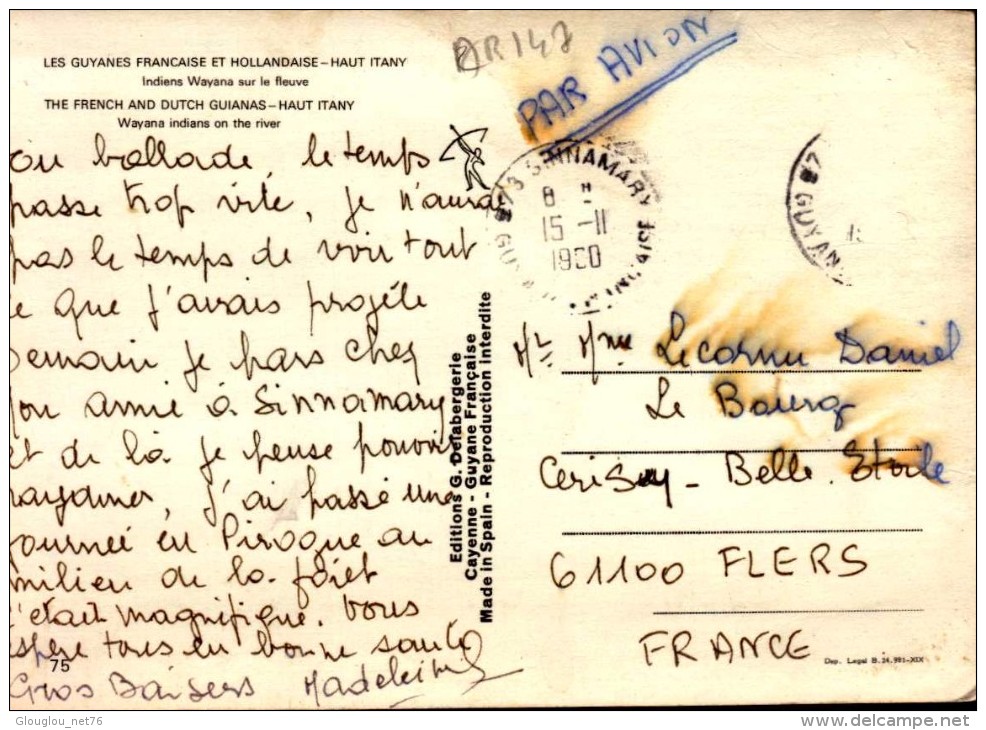 AR147
PAR AVION
LES GUYANES FRANCAISE ET HOLLANDAISE – HAUT ITANY
Indiens Wayana sur le fleuve
THE FRENCH AND DUTCH GUIANAS – HAUT ITANY
Wayana indians on the river
ou ballade, le temps
passe trop vite, je n'aurai
pas le temps de voir tout
ce que j'avais projété
Demain je pars chez
Mon amie à Sinnamary
et de là je pense pouvoir
rayonner, j'ai passé une
journée en Pirogue au
milieu de la forêt
c'était magnifique. Vous
espère tous en bonne santé
Gros Baisers Madeleine
75
Editions G. Delabergerie
Cayenne - Guyane Française
Made in Spain - Reproduction interdite
973 SINNAMARY
8 H
15 -11
1980
GUYANE FRANCAISE
GUYAN
Mr Mme Lecornu Daniel
Le Bourg
Cerisy - Belle. Etoile
61100 FLERS
FRANCE
Dep. Legal B. 24.981-XIX
Glouglou_net76